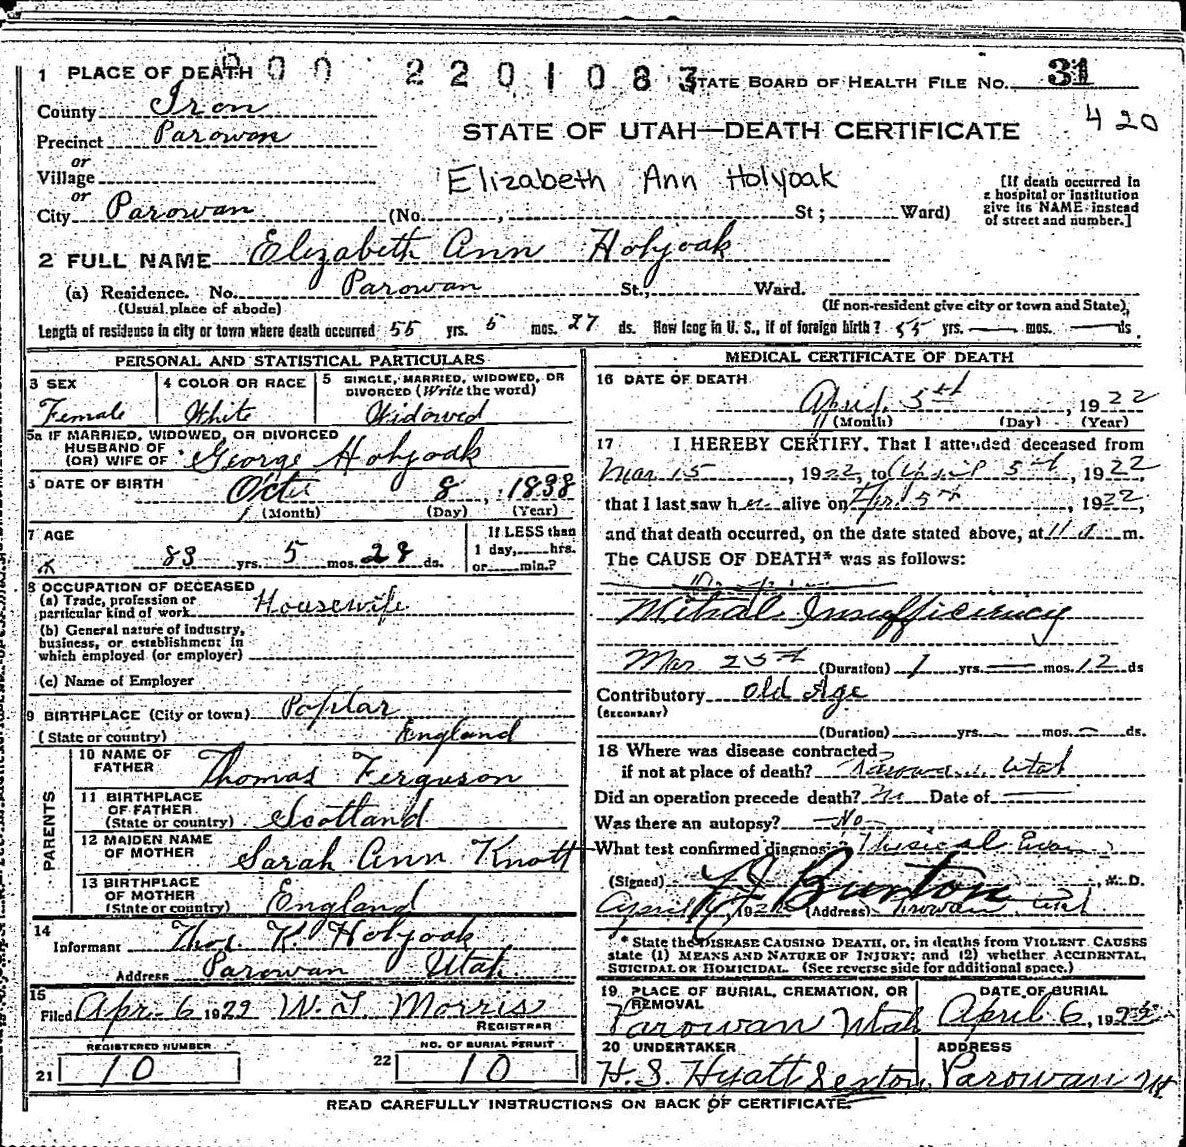 000 2201083
1 PLACE OF DEATH
STATE BOARD OF HEALTH FILE NO. 31
County Iron
420
Precinct Parowan
STATE OF UTAH—DEATH CERTIFICATE
or
Village
Elizabeth Ann Holyoak
or
City Parowan (No. , St; Ward)
[If death occurred in
a hospital or institution
give its NAME instead
of street and number.]
2 FULL NAME Elizabeth Ann Holyoak
(a) Residence. No. Parowan St., Ward.
(Usual place of abode) (If non-resident give city or town and State)
Length of residence in city or town where death occurred 55 yrs. 5 mos. 27 ds. How long in U. S., if of foreign birth? 55 yrs. — mos. — ds
PERSONAL AND STATISTICAL PARTICULARS
3 SEX
Female
4 COLOR OR RACE
White
5 SINGLE, MARRIED, WIDOWED, OR
DIVORCED (Write the word)
Widowed
5a IF MARRIED, WIDOWED, OR DIVORCED
HUSBAND OF
(OR) WIFE OF George Holyoak
DATE OF BIRTH Oct 8, 1838
(Month) (Day) (Year)
7 AGE
83 yrs. 5 mos. 28 ds.
If LESS than
1 day, hrs.
or min.?
8 OCCUPATION OF DECEASED
(a) Trade, profession or
particular kind of work Housewife
(b) General nature of industry,
business, or establishment in
which employed (or employer)
(c) Name of Employer
9 BIRTHPLACE (City or town) Poplar
(State or country) England
PARENTS
10 NAME OF
FATHER Thomas Ferguson
11 BIRTHPLACE
OF FATHER
(State or country) Scotland
12 MAIDEN NAME
OF MOTHER Sarah Ann Knott
13 BIRTHPLACE
OF MOTHER
(State or country) England
14
Informant Thos. K. Holyoak
Address Parowan Utah
15
Filed Apr. 6 1922 W. T. Morris
REGISTRAR
REGISTERED NUMBER
21 10
NO. OF BURIAL PERMIT
22 10
MEDICAL CERTIFICATE OF DEATH
16 DATE OF DEATH
April 5th, 1922
(Month) (Day) (Year)
17 I HEREBY CERTIFY, That I attended deceased from
Mar 15, 1922, to April 5th, 1922,
that I last saw her alive on Apr. 5th, 1922,
and that death occurred, on the date stated above, at 11 a m.
The CAUSE OF DEATH* was as follows:
Mitral Insufficiency
Mar 25th (Duration) 1 yrs. — mos. 12 ds
Contributory old Age
(SECONDARY)
(Duration) yrs. — mos. — ds.
18 Where was disease contracted
if not at place of death? Parowan, Utah
Did an operation precede death? No Date of —
Was there an autopsy? No
What test confirmed diagnosis? Physical Exam
(Signed) Burton, M. D.
April 1922 (Address) Parowan, Utah
* State the DISEASE CAUSING DEATH, or, in deaths from VIOLENT CAUSES
state (1) MEANS AND NATURE OF INJURY; and (2) whether ACCIDENTAL,
SUICIDAL OR HOMICIDAL. (See reverse side for additional space.)
19 PLACE OF BURIAL, CREMATION, OR
REMOVAL
Parowan Utah
DATE OF BURIAL
April 6, 1922
20 UNDERTAKER
H. S. Hyatt Sexton,
ADDRESS
Parowan Ut
READ CAREFULLY INSTRUCTIONS ON BACK OF CERTIFICATE.